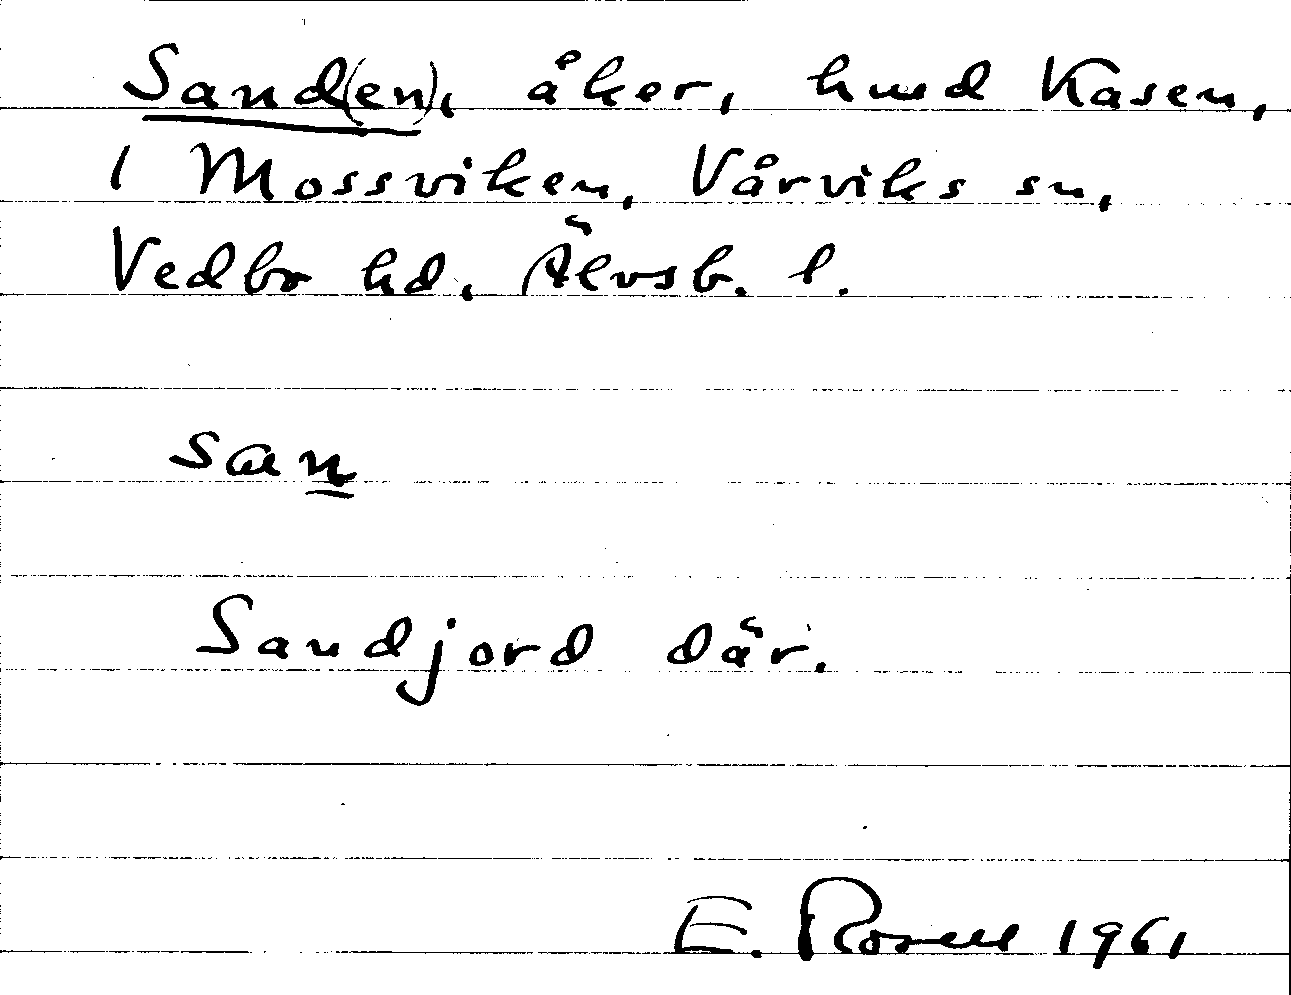 Sand(en), åker, hmd Kasen,
1 Mossviken, Vårviks sn,
Vedbo hd. Älvsb. l.
san
Sandjord där.
E. Rosell 1961